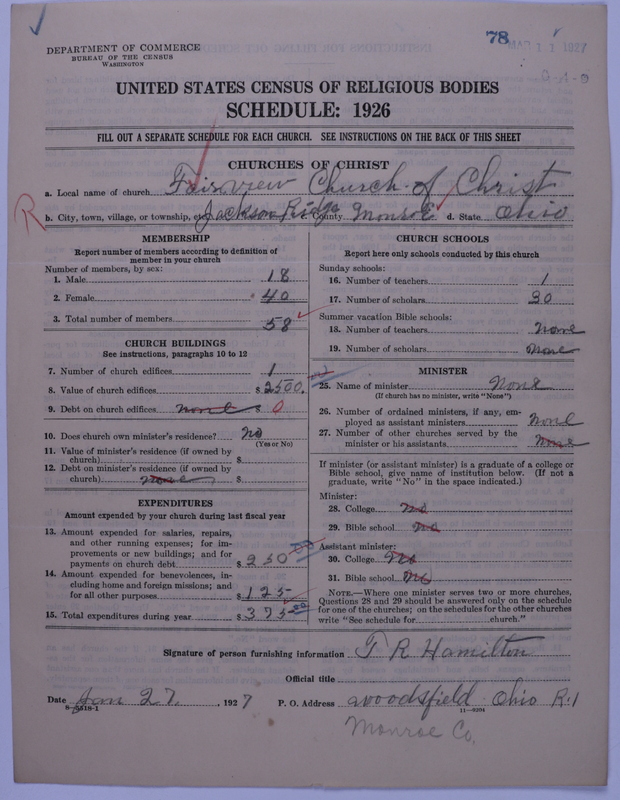 78 MAR 11 1927
DEPARTMENT OF COMMERCE
BUREAU OF THE CENSUS
WASHINGTON
G-A-9
UNITED STATES CENSUS OF RELIGIOUS BODIES
SCHEDULE: 1926
FILL OUT A SEPARATE SCHEDULE FOR EACH CHURCH. SEE INSTRUCTIONS ON THE BACK OF THIS SHEET
CHURCHES OF CHRIST
a. Local name of church Fairview Church of Christ
R b. City, town, village, or township, or Jackson Ridge County Monroe d. State Ohio
MEMBERSHIP
Report number of members according to definition of
member in your church
Number of members, by sex:
1. Male 18
2. Female 40
3. Total number of members 58
CHURCH BUILDINGS
See instructions, paragraphs 10 to 12
7. Number of church edifices 1
8. Value of church edifices $ 2500.
9. Debt on church edifices none $ 0
10. Does church own minister's residence? no
(Yes or No)
11. Value of minister's residence (if owned by
church) $
12. Debt on minister's residence (if owned by
church) none $
EXPENDITURES
Amount expended by your church during last fiscal year
13. Amount expended for salaries, repairs,
and other running expenses; for im-
provements or new buildings; and for
payments on church debt $ 250
14. Amount expended for benevolences, in-
cluding home and foreign missions; and
for all other purposes $ 125
15. Total expenditures during year $ 375
CHURCH SCHOOLS
Report here only schools conducted by this church
Sunday schools:
16. Number of teachers 1
17. Number of scholars 30
Summer vacation Bible schools:
18. Number of teachers none
19. Number of scholars none
MINISTER
25. Name of minister None
(If church has no minister, write "None")
26. Number of ordained ministers, if any, em-
ployed as assistant ministers none
27. Number of other churches served by the
minister or his assistants none
If minister (or assistant minister) is a graduate of a college or
Bible school, give name of institution below. (If not a
graduate, write "No" in the space indicated.)
Minister:
28. College no
29. Bible school no
Assistant minister:
30. College no
31. Bible school no
NOTE.—Where one minister serves two or more churches,
Questions 28 and 29 should be answered only on the schedule
for one of the churches; on the schedules for the other churches
write "See schedule for church."
Signature of person furnishing information T R Hamilton
Official title
Date Jan 27, 1927 P. O. Address Woodsfield Ohio R.1
8-5518-1 11—9204
Monroe Co.